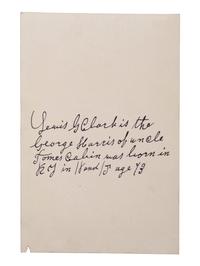 Lewis G Clark is the
George Harris of uncle
Tomes Cabin was born in
Ky in 18 and 15 age 73